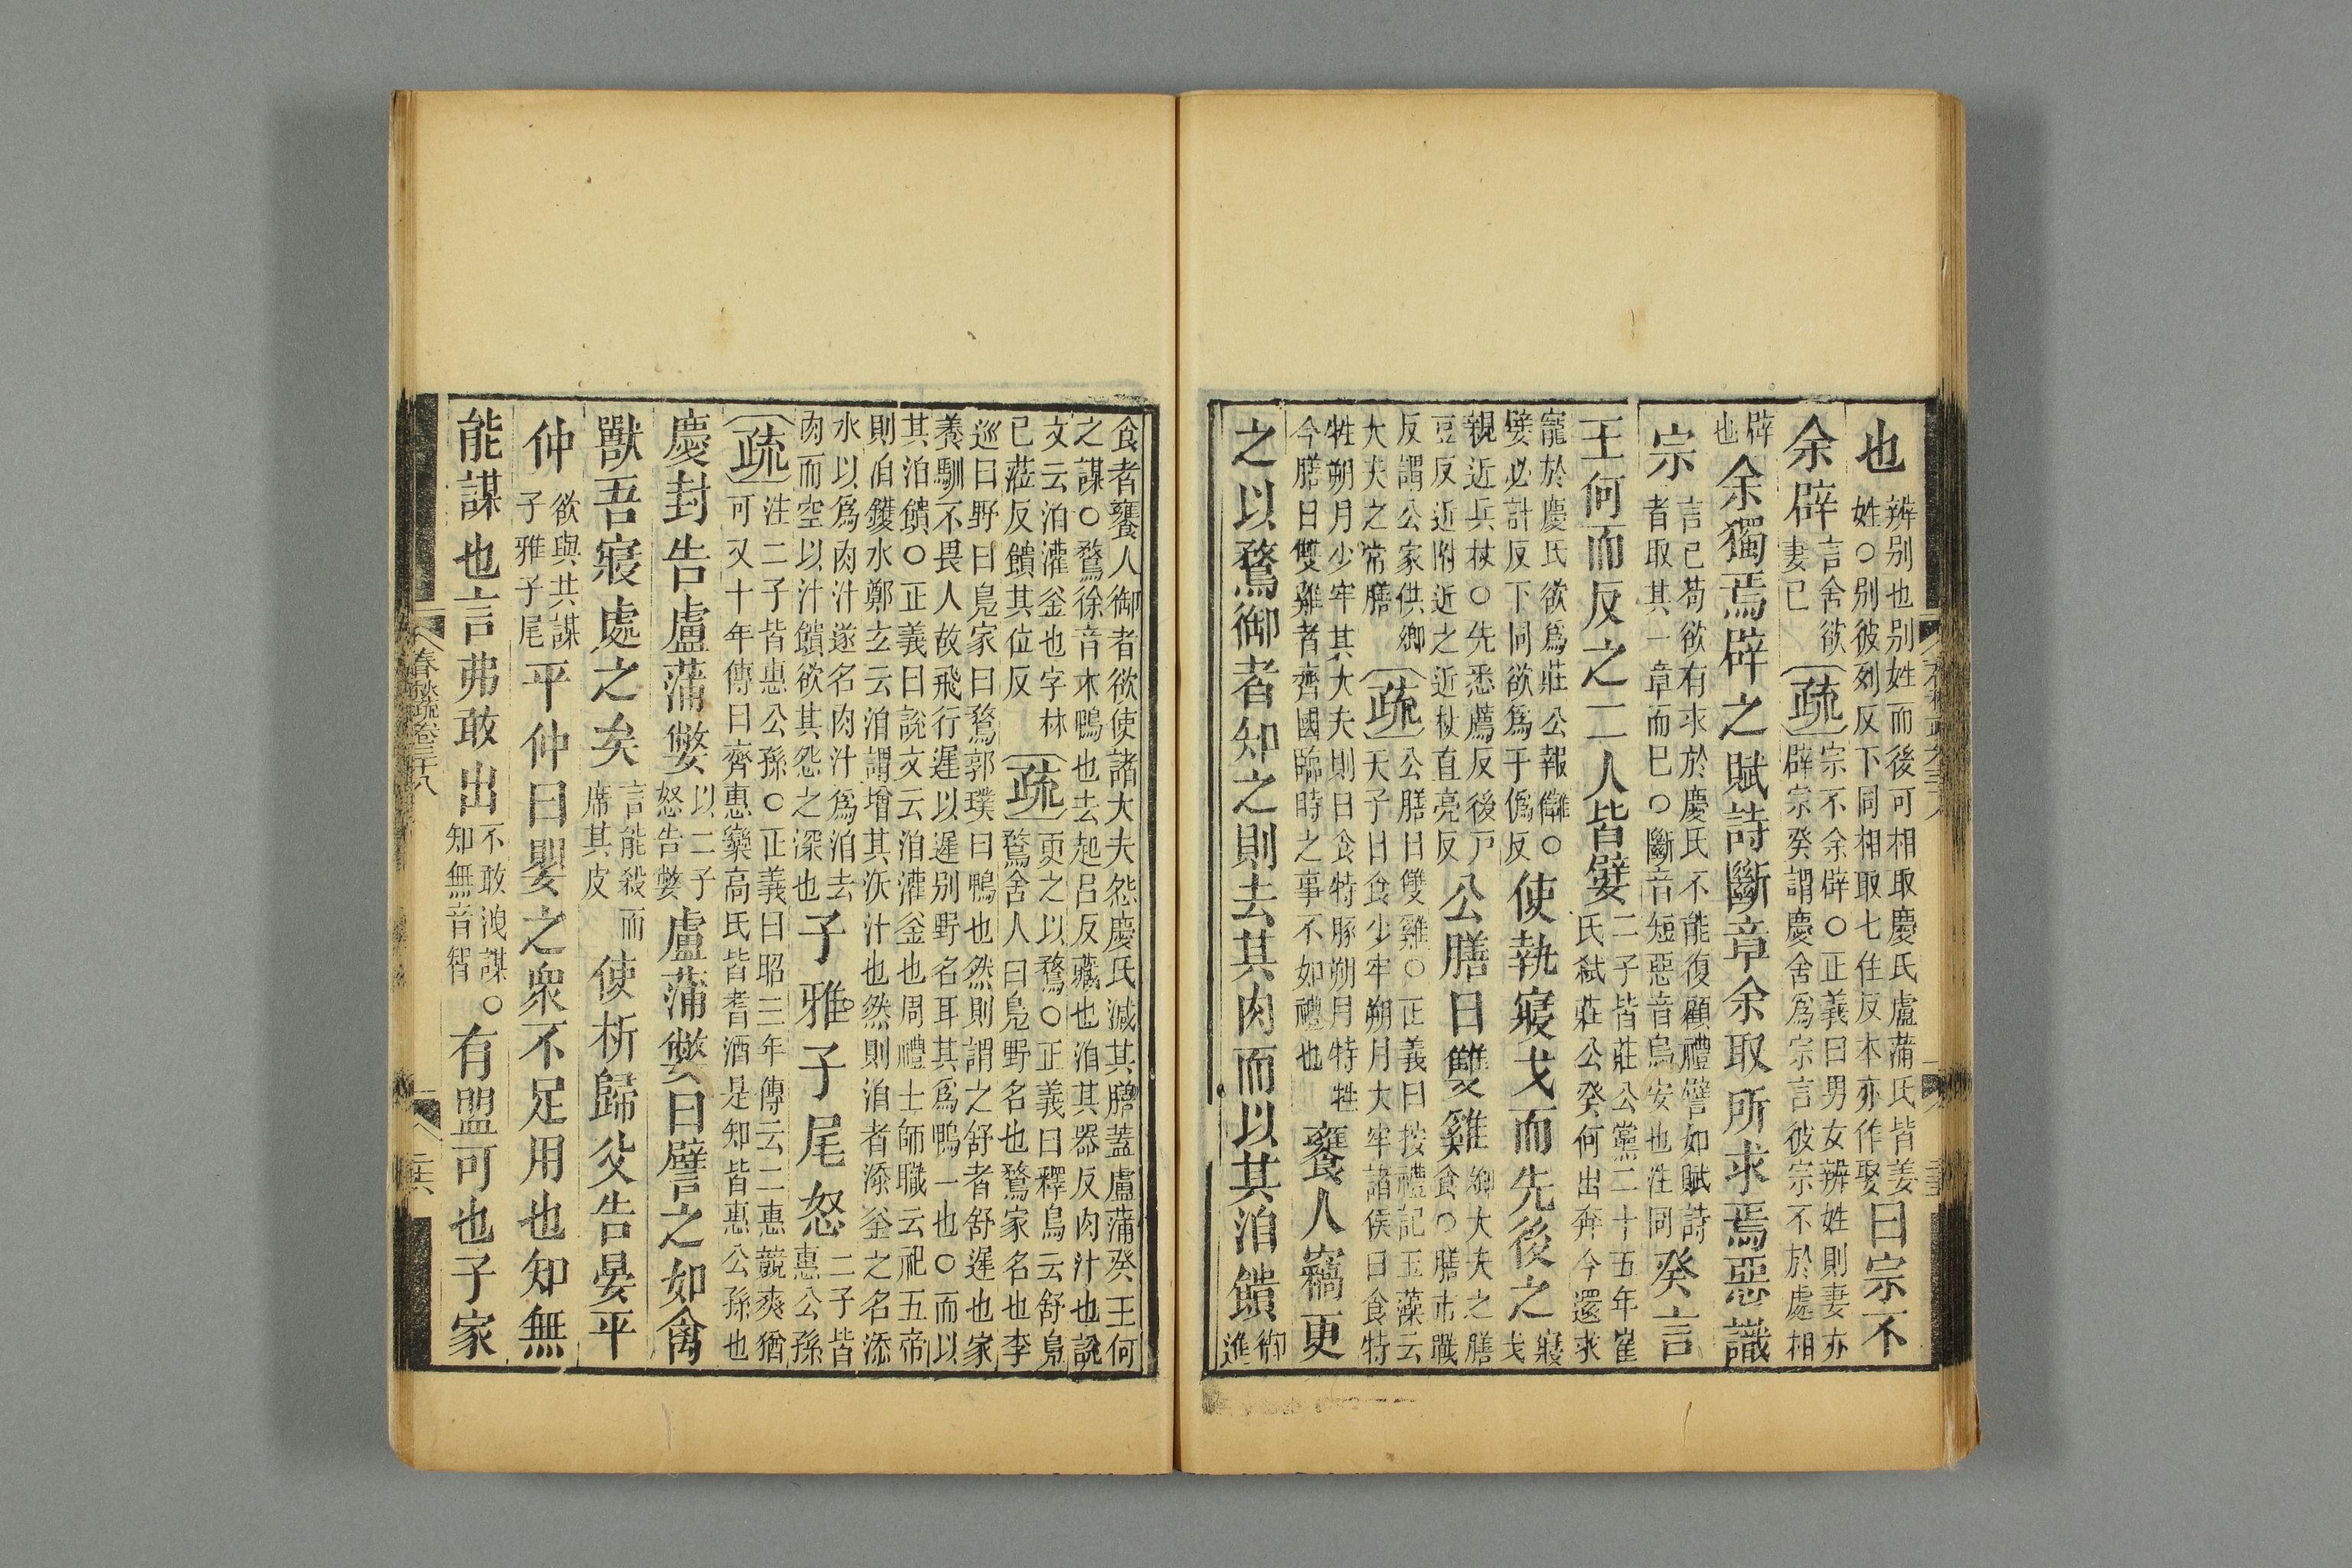 也辨別也別姓而後可相取慶氏盧蒲氏皆姜姓○別彼列反下同相取七住反本亦作娶曰宗不
余辟言舍欲妻己疏宗不余辟○正義曰男女辨姓則妻亦辟宗癸謂慶舍爲宗言彼宗不於處相
辟也余獨焉辟之賦詩斷章余取所求焉惡識
宗言己苟欲有求於慶氏不能復顧禮譬如賦詩者取其一章而已○斷音短惡音烏安也注同癸言
王何而反之二人皆嬖二子皆莊公黨二十五年崔氏弑莊公癸何出奔今還求
寵於慶氏欲爲莊公報讎○嬖必計反下同欲爲于僞反使執寢戈而先後之寢戈
親近兵杖○先悉薦反後戸豆反近附近之近杖直亮反公膳日雙雞卿大夫之膳食○膳市戰
反謂公家供卿大夫之常膳疏公膳日雙雞○正義曰按禮記玉藻云天子日食少牢朔月大牢諸侯日食特
牲朔月少牢其大夫則日食特豚朔月特牲今膳日雙雞者齊國臨時之事不如禮也饔人竊更
之以鶩御者知之則去其肉而以其洎饋御進
食者饔人御者欲使諸大夫怨慶氏減其膳蓋盧蒲癸王何之謀○鶩徐音木鴨也去起呂反藏也洎其器反肉汁也說
文云洎灌釜也字林已蒞反饋其位反疏更之以鶩○正義曰釋鳥云舒鳧鶩舍人曰鳧野名也鶩家名也李
巡曰野曰鳧家曰鶩郭璞曰鴨也然則謂之舒者舒遲也家養馴不畏人故飛行遲以遲別野名耳其爲鴨一也○而以
其洎饋○正義曰說文云洎灌釜也周禮士師職云祀五帝則洎鑊水鄭玄云洎謂增其沃汁也然則洎者添釜之名添
水以爲肉汁遂名肉汁爲洎去肉而空以汁饋欲其怨之深也子雅子尾怒二子皆惠公孫
疏注二子皆惠公孫○正義曰昭三年傳云二惠競爽猶可又十年傳曰齊惠欒高氏皆耆酒是知皆惠公孫也
慶封告盧蒲嫳以二子怒告嫳盧蒲嫳曰譬之如禽
獸吾寢處之矣言能殺而席其皮使析歸父告晏平
仲欲與共謀子雅子尾平仲曰嬰之衆不足用也知無
能謀也言弗敢出不敢洩謀○知無音智有盟可也子家
春秋疏卷三十八
二六